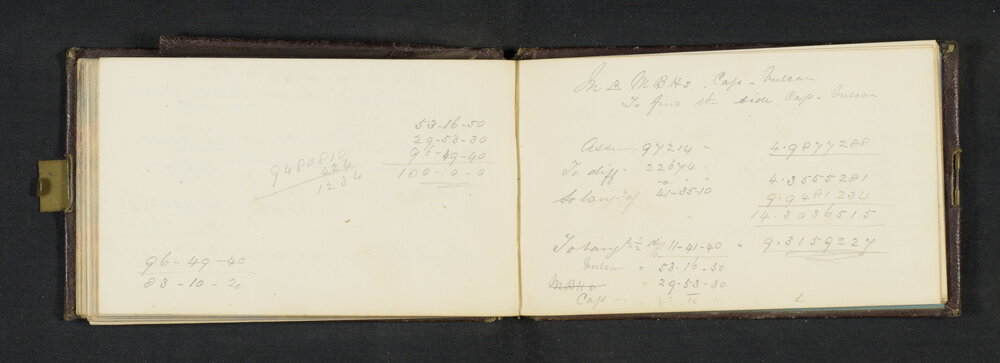 53-16-50
29-53-30
96-49-40
180-0-0
9480810
424
1234
96-49-40
83-10-20
In Δ M B Hs. Cape - Vulcan
To find the side Cape - Vulcan
As sum 97214 = 4.9877288
To diff. 22674 = 4.3555281
So tang of 41-35-10 9.9481234
14.3036515
To tang ½ diff 11-41-40 = 9.3159227
Vulcan = 53-16-50
M B Hs = 29-53-30
Cape -